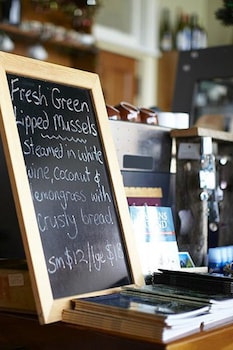 Fresh Green
Lipped Mussels
Steamed in white
wine, coconut &
lemongrass with
crusty bread
sm $12/lge $18